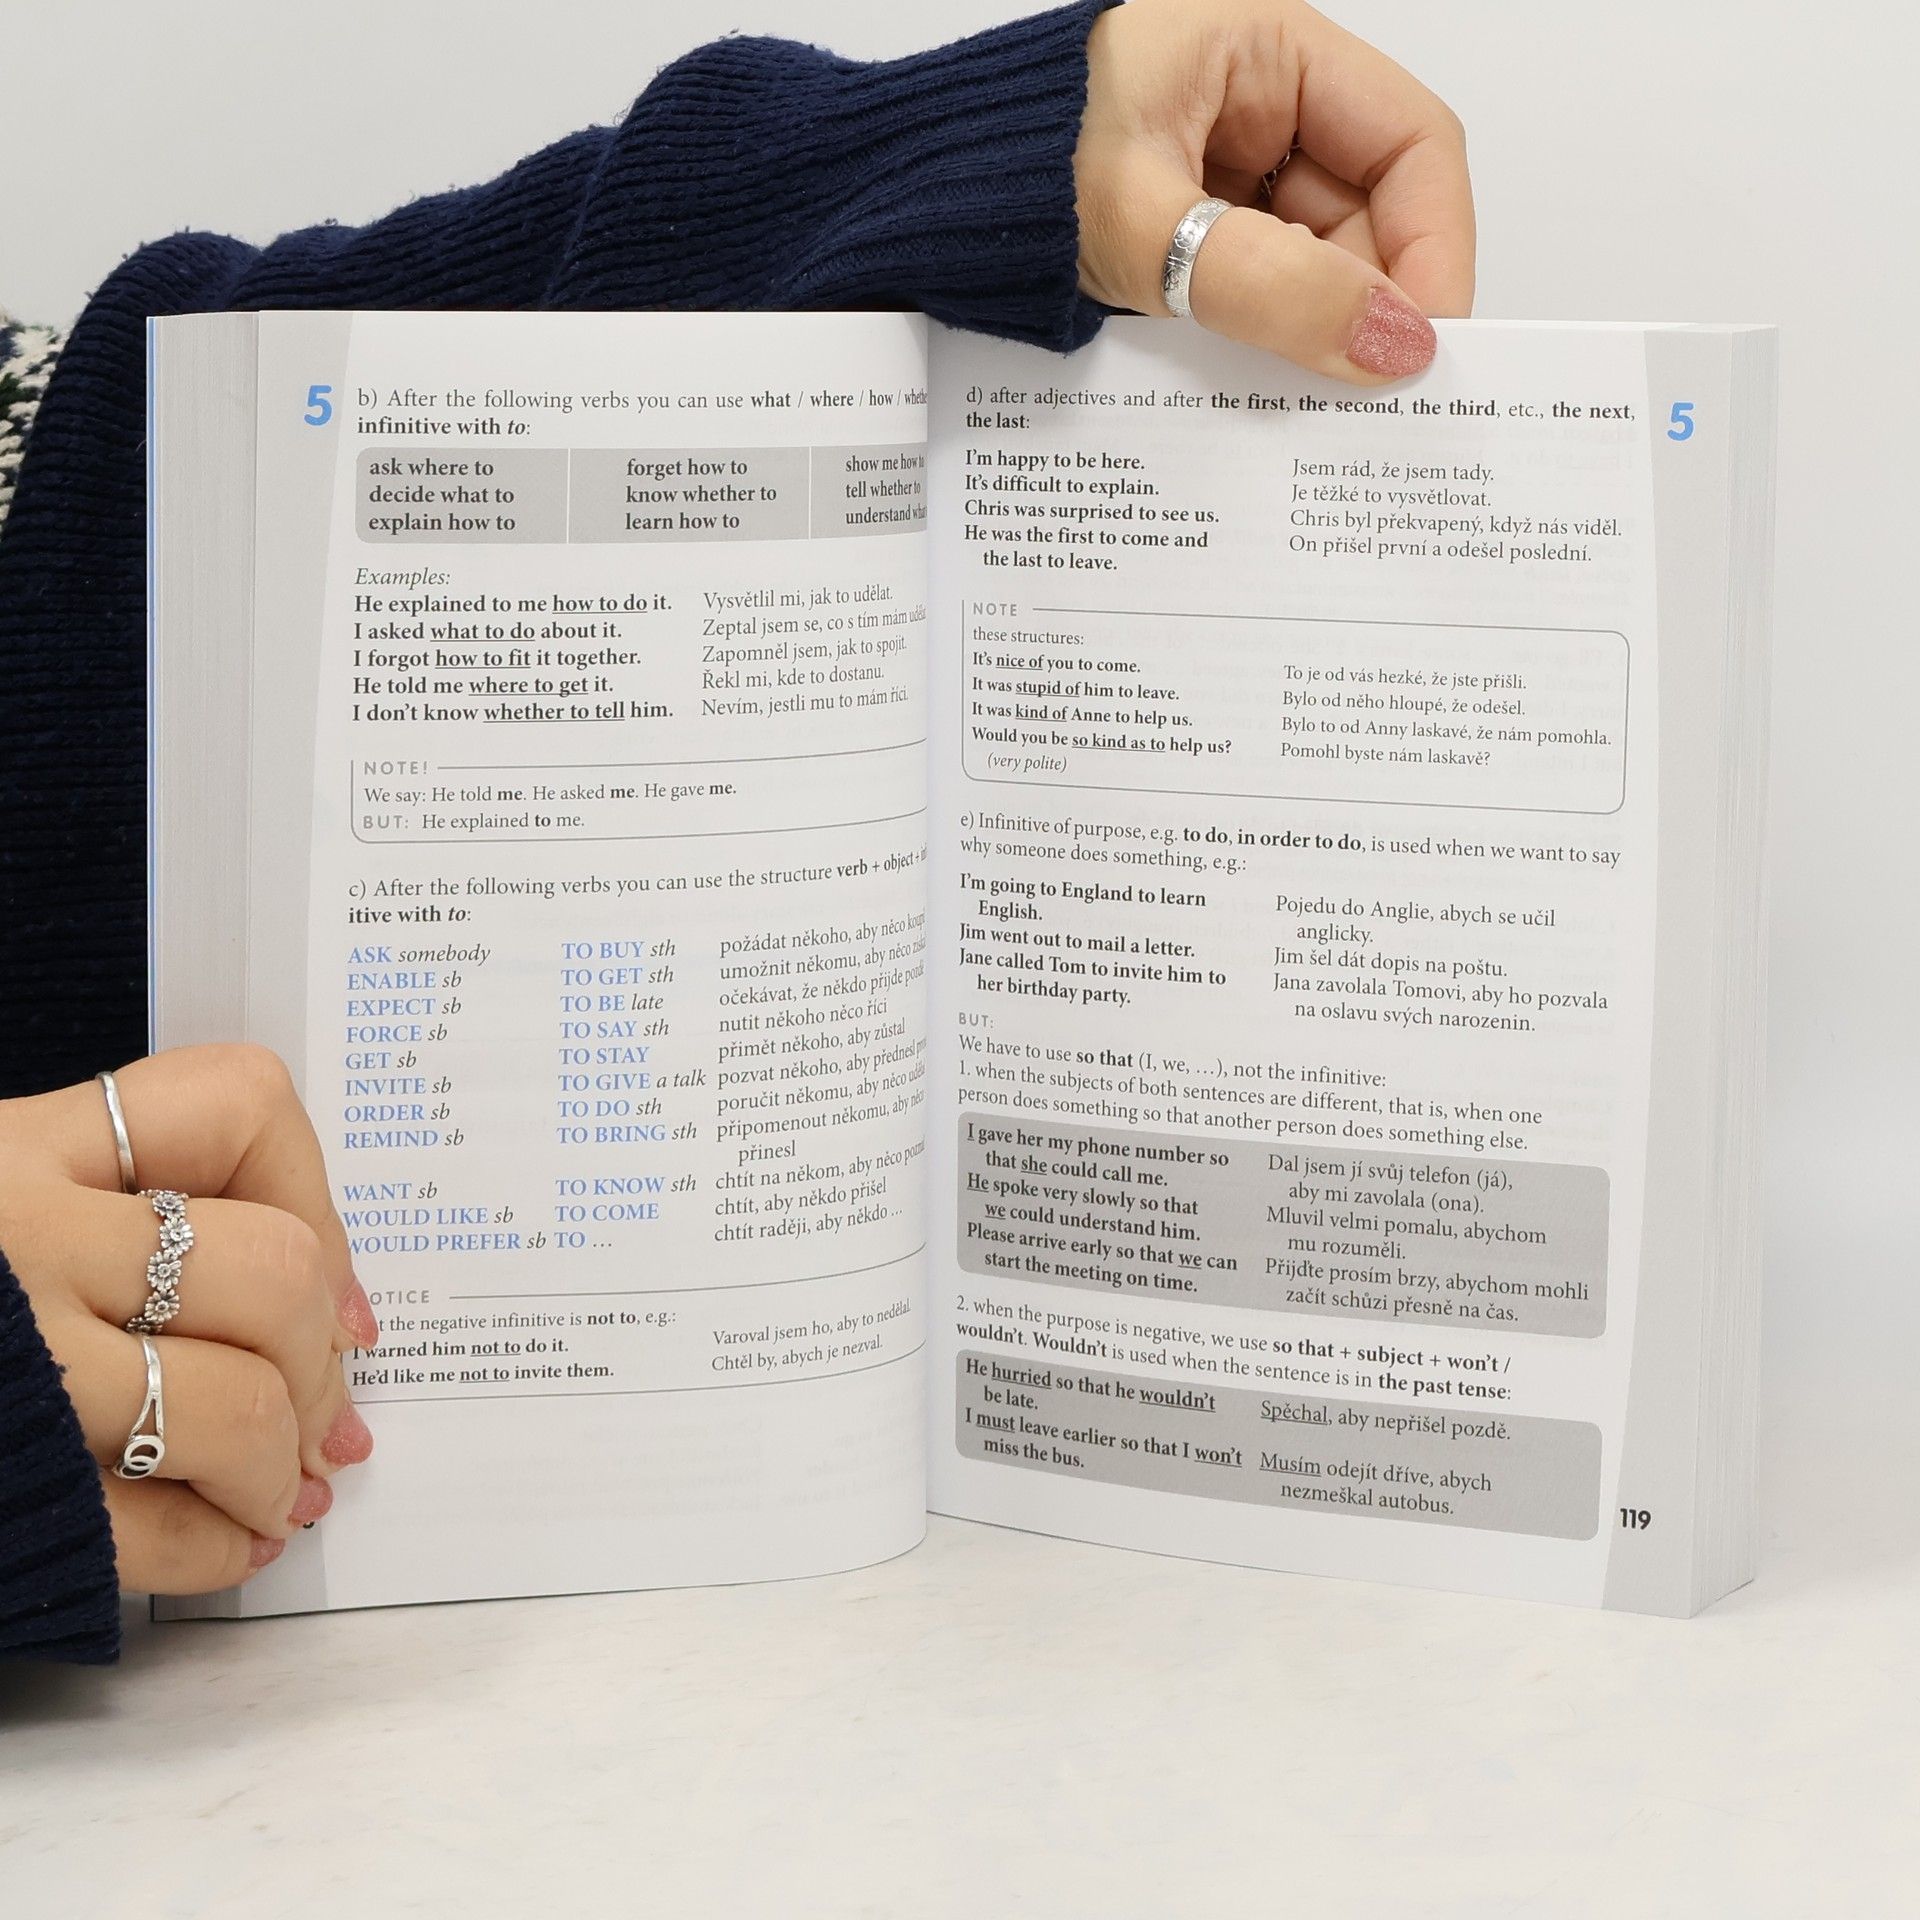 5
b) After the following verbs you can use what / where / how /
infinitive with to:
ask where to forget how to show me how to
decide what to know whether to tell whether to
explain how to learn how to understand
Examples:
He explained to me how to do it. Vysvětlil mi, jak to udělat.
I asked what to do about it. Zeptal jsem se, co s tím mám
I forgot how to fit it together. Zapomněl jsem, jak to spojit.
He told me where to get it. Řekl mi, kde to dostanu.
I don't know whether to tell him. Nevím, jestli mu to mám říci.
NOTE!
We say: He told me. He asked me. He gave me.
BUT: He explained to me.
c) After the following verbs you can use the structure verb + object +
itive with to:
ASK somebody TO BUY sth požádat někoho, aby něco
ENABLE sb TO GET sth umožnit někomu, aby něco
EXPECT sb TO BE late očekávat, že někdo přijde
FORCE sb TO SAY sth nutit někoho něco říci
GET sb TO STAY přimět někoho, aby zůstal
INVITE sb TO GIVE a talk pozvat někoho, aby přednesl
ORDER sb TO DO sth poručit někomu, aby něco
REMIND sb TO BRING sth připomenout někomu, aby
přinesl
WANT sb TO KNOW sth chtít na někom, aby něco
WOULD LIKE sb TO COME chtít, aby někdo přišel
WOULD PREFER sb TO ... chtít raději, aby někdo ...
OTICE
the negative infinitive is not to, e.g.:
I warned him not to do it. Varoval jsem ho, aby to nedělal.
He'd like me not to invite them. Chtěl by, abych je nezval.
5
d) after adjectives and after the first, the second, the third, etc., the next,
the last:
I'm happy to be here. Jsem rád, že jsem tady.
It's difficult to explain. Je těžké to vysvětlovat.
Chris was surprised to see us. Chris byl překvapený, když nás viděl.
He was the first to come and On přišel první a odešel poslední.
the last to leave.
NOTE
these structures:
It's nice of you to come. To je od vás hezké, že jste přišli.
It was stupid of him to leave. Bylo od něho hloupé, že odešel.
It was kind of Anne to help us. Bylo to od Anny laskavé, že nám pomohla.
Would you be so kind as to help us? Pomohl byste nám laskavě?
(very polite)
e) Infinitive of purpose, e.g. to do, in order to do, is used when we want to say
why someone does something, e.g.:
I'm going to England to learn Pojedu do Anglie, abych se učil
English. anglicky.
Jim went out to mail a letter. Jim šel dát dopis na poštu.
Jane called Tom to invite him to Jana zavolala Tomovi, aby ho pozvala
her birthday party. na oslavu svých narozenin.
BUT:
We have to use so that (I, we, ...), not the infinitive:
1. when the subjects of both sentences are different, that is, when one
person does something so that another person does something else.
I gave her my phone number so Dal jsem jí svůj telefon (já),
that she could call me. aby mi zavolala (ona).
He spoke very slowly so that Mluvil velmi pomalu, abychom
we could understand him. mu rozuměli.
Please arrive early so that we can Přijďte prosím brzy, abychom mohli
start the meeting on time. začít schůzi přesně na čas.
2. when the purpose is negative, we use so that + subject + won't /
wouldn't. Wouldn't is used when the sentence is in the past tense:
He hurried so that he wouldn't Spěchal, aby nepřišel pozdě.
be late.
I must leave earlier so that I won't Musím odejít dříve, abych
miss the bus. nezmeškal autobus.
119